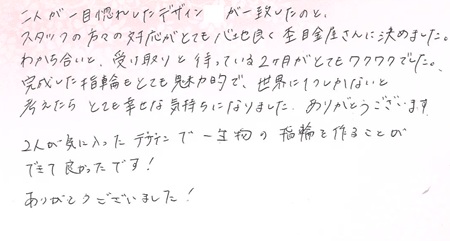 二人が一目惚れしたデザインが一致したのと、
スタッフの方々の対応がとても心地良く杢目金屋さんに決めました。
わかち合いと、受け取りと待っている2ヶ月がとてもワクワクでした。
完成した指輪もとても魅力的で、世界に1つしかないと
考えたら とても幸せな気持ちになりました。ありがとうございます
2人が気に入ったデザインで一生物の指輪を作ることが
できて良かったです!
ありがとうございました!